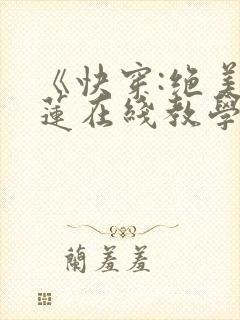 《快穿:绝美
蓮在綫教學
蘭羞羞